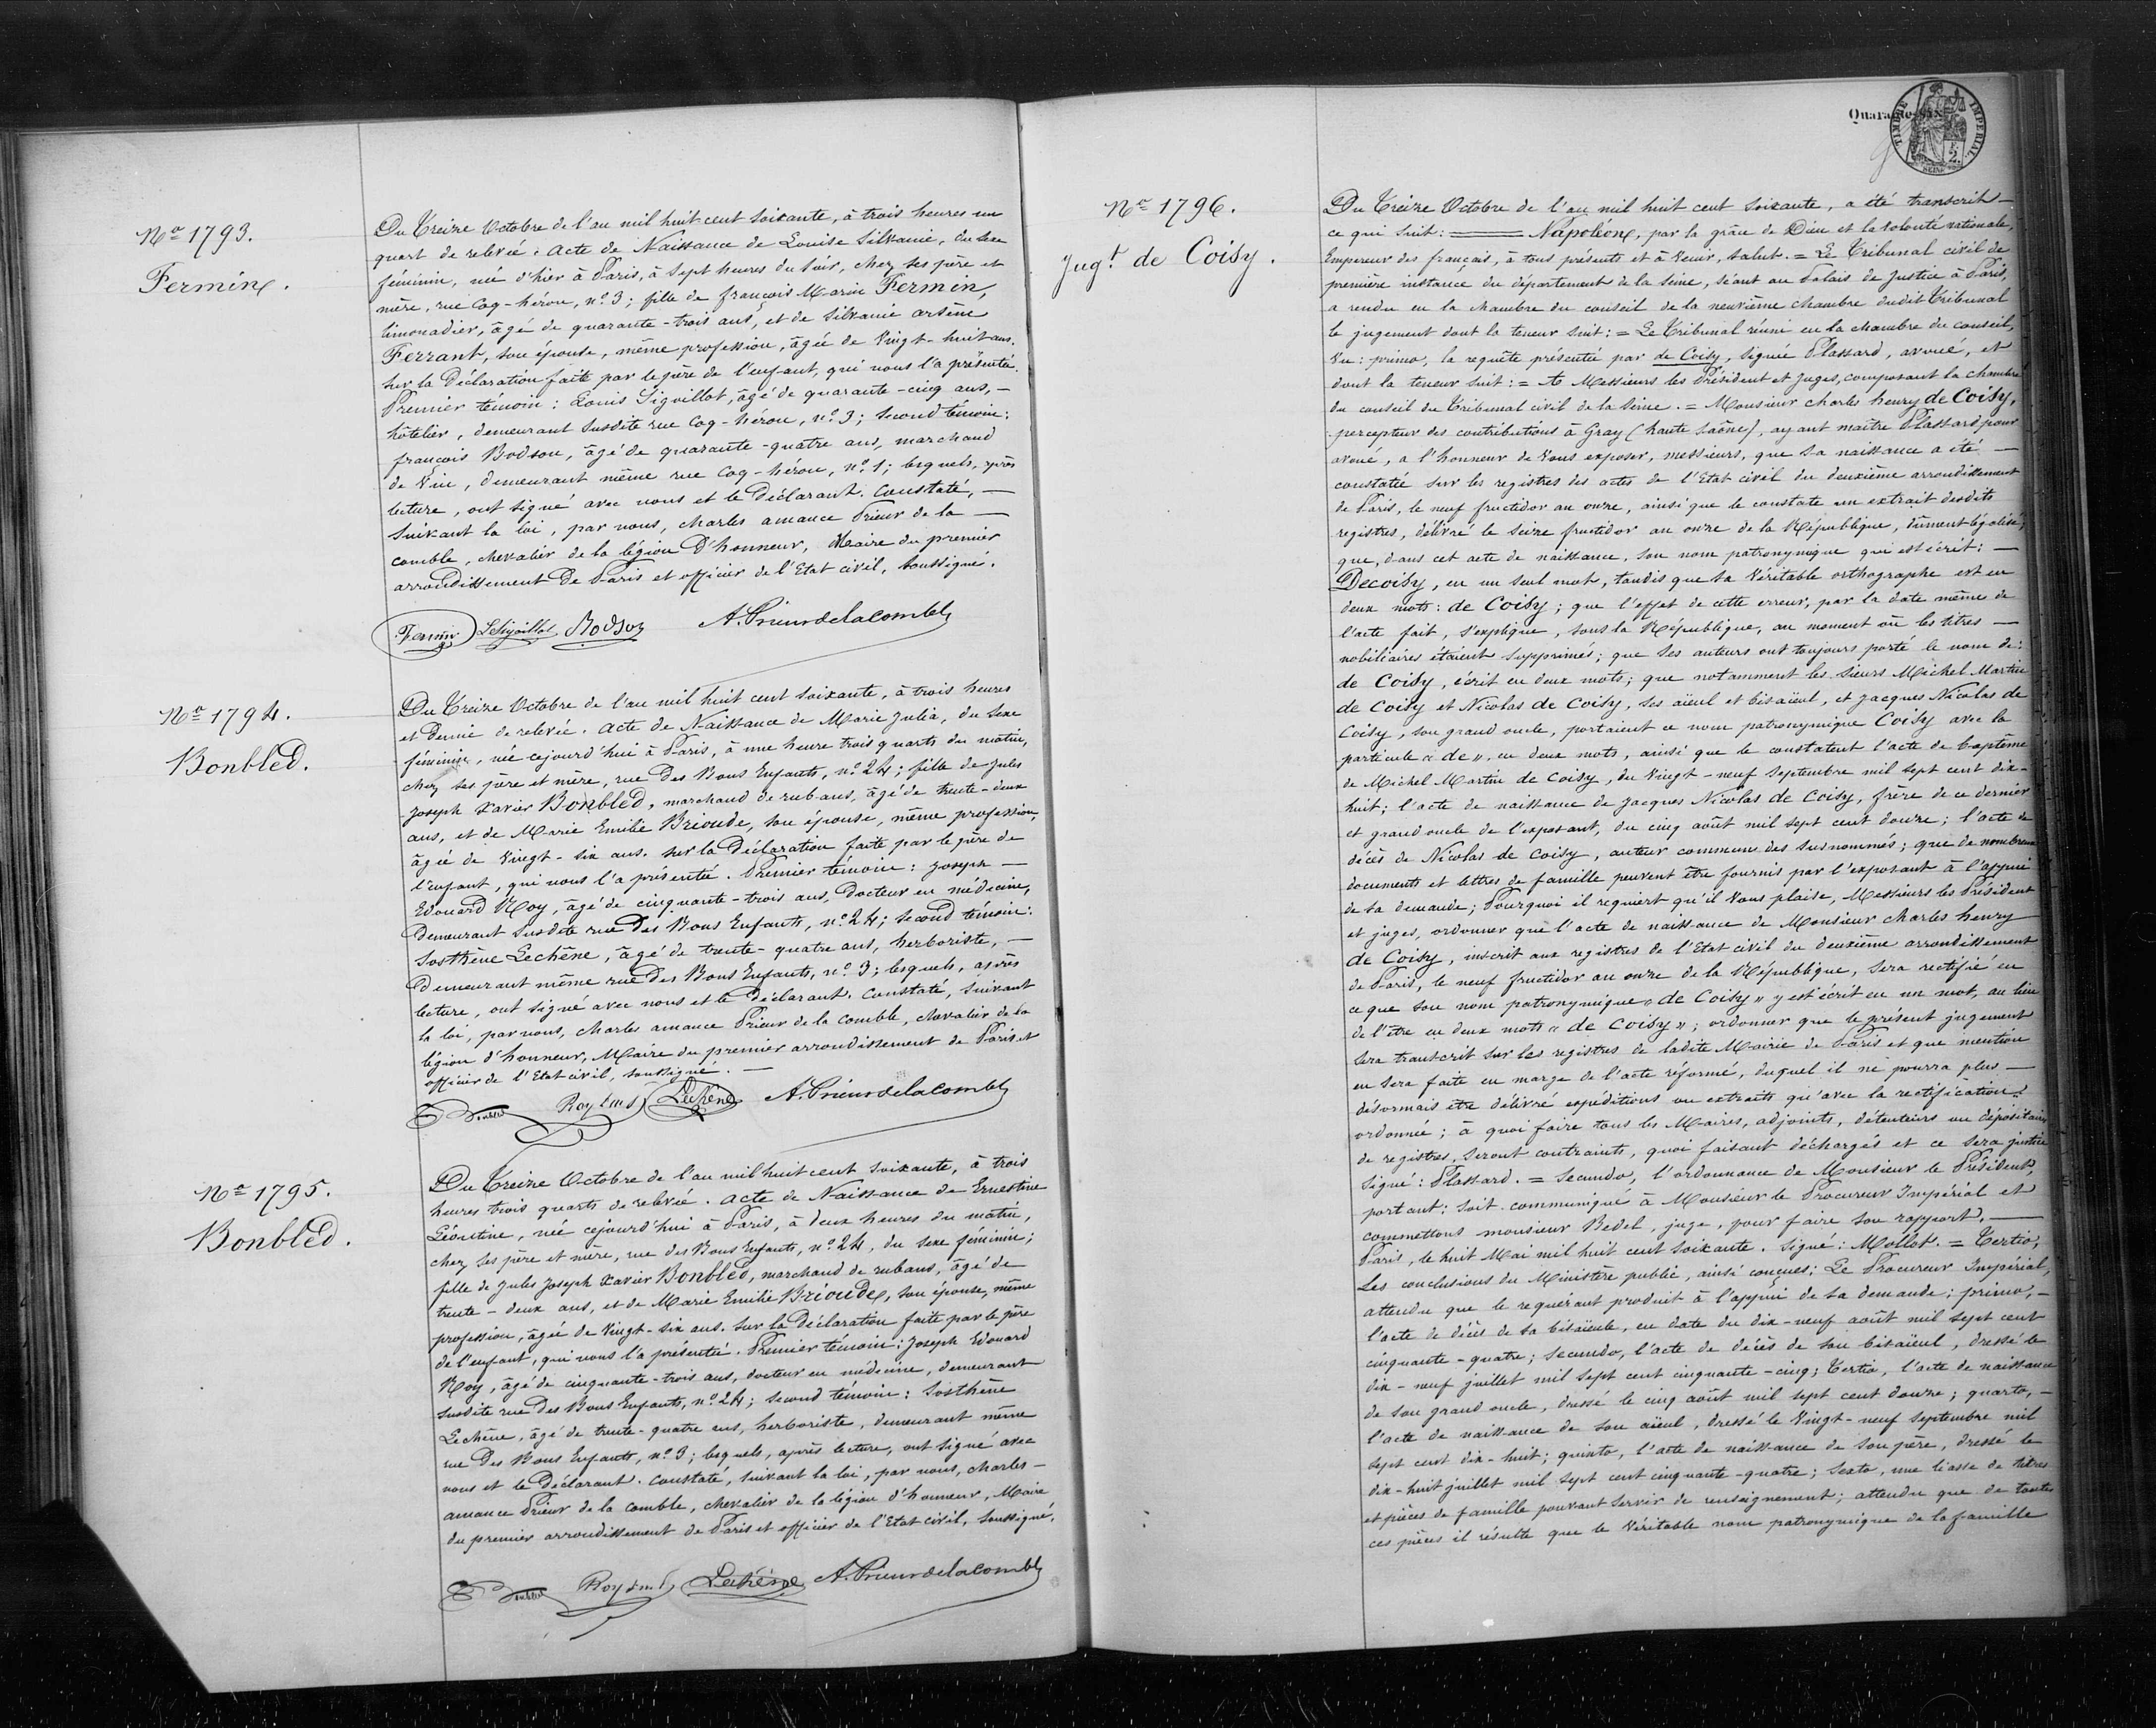 Nº 1793.
Fermin.
Du Treize Octobre de l'an mil huit cent soixante, à trois heures un
quart de relevée. Acte de Naissance de Louise Silvanie, du sexe
féminin, née d'hier à Paris, à sept heures du soir, chez ses père et
mère, rue Coq-héron, nº 3; fille de françois Marin Fermin,
limonadier, âgé de quarante-trois ans, et de Silvanie arsène
Ferrant, son épouse, même profession, âgée de vingt-huit ans.
sur la Déclaration faite par le père de l'enfant, qui nous l'a présenté.
Premier témoin: Louis Sigoillot, âgé de quarante-cinq ans, —
hôtelier, demeurant susdite rue Coq-héron, nº 3; second témoin:
françois Bodson, âgé de quarante-quatre ans, marchand
de vin, demeurant même rue Coq-héron, nº 1; lesquels, après
lecture, ont signé avec nous et le Déclarant. Constaté, —
suivant la loi, par nous, charles amance Prieur de la —
comble, chevalier de la légion D'honneur, Maire du premier
arrondissement De Paris et officier de l'Etat civil, soussigné.
Fermin LSigoillot Bodson A. Prieurdelacomble
Nº 1794.
Bonbled.
Du Treize Octobre de l'an mil huit cent soixante, à trois heures
et demie de relevée. Acte de Naissance de Marie Julia, du sexe
féminin, née cejourd'hui à Paris, à une heure trois quarts du matin,
chez ses père et mère, rue Des Bons Enfants, nº 24; fille de Jules
Joseph Xavier Bonbled, marchand de rubans, âgé de trente-deux
ans, et de Marie Emilie Brioude, son épouse, même profession,
âgée de vingt-six ans. sur la Déclaration faite par le père de
l'enfant, qui nous l'a présenté. Premier témoin: Joseph —
Edouard Roy, âgé de cinquante-trois ans, Docteur en médecine,
Demeurant susdite rue Des Bons Enfants, nº 24; second témoin:
Sosthène Lechêne, âgé de trente-quatre ans, herboriste, —
Demeurant même rue Des Bons Enfants, nº 3; lesquels, après
lecture, ont signé avec nous et le Déclarant. Constaté, suivant
la loi, par nous, charles amance Prieur de la comble, chevalier de la
légion d'honneur, Maire du premier arrondissement de Paris et
officier de l'Etat civil, soussigné. —
Bonbled Roy Lechêne A. Prieurdelacomble
Nº 1795.
Bonbled.
Du Treize Octobre de l'an mil huit cent soixante, à trois
heures trois quarts de relevée. acte de Naissance de Ernestine
Léontine, née cejourd'hui à Paris, à deux heures du matin,
chez ses père et mère, rue des Bons Enfants, nº 24, du sexe féminin;
fille de Jules Joseph Xavier Bonbled, marchand de rubans, âgé de
trente-deux ans, et de Marie Emilie Brioude, son épouse, même
profession, âgée de vingt-six ans. sur la Déclaration faite par le père
de l'enfant, qui nous l'a présentée. Premier témoin: Joseph Edouard
Roy, âgé de cinquante-trois ans, docteur en médecine, demeurant
susdite rue Des Bons Enfants, nº 24; second témoin: Sosthène
Lechêne, âgé de trente-quatre ans, herboriste, demeurant même
rue Des Bons Enfants, nº 3; lesquels, après lecture, ont signé avec
nous et le Déclarant. Constaté, suivant la loi, par nous, charles —
amance Prieur de la comble, chevalier de la légion d'honneur, Maire
du premier arrondissement de Paris et officier de l'Etat civil, soussigné.
Bonbled Roy Lechêne A. Prieurdelacomble
Quarante-six
TIMBRE IMPERIAL
2
SEINE
Nº 1796.
Jugt de Coisy.
Du Treize Octobre de l'an mil huit cent soixante, a été transcrit —
ce qui suit: = Napoléon, par la grâce de Dieu et la volonté nationale,
Empereur des français, à tous présents et à venir, salut. = Le Tribunal civil de
première instance du département de la seine, séant au Palais de Justice à Paris,
a rendu en la chambre du conseil de la neuvième chambre dudit Tribunal
le jugement dont la teneur suit: = Le Tribunal réuni en la chambre du conseil,
Vu: primo, la requête présentée par de Coisy, signée Plassard, avoué, et
dont la teneur suit: = A Messieurs les Président et Juges, composant la chambre
du conseil du Tribunal civil de la Seine. = Monsieur charles henry de Coisy,
percepteur des contributions à Gray (haute Saône), ayant maître Plassard pour
avoué, a l'honneur de vous exposer, messieurs, que sa naissance a été —
constatée sur les registres des actes de l'Etat civil du deuxième arrondissement
de Paris, le neuf fructidor an onze, ainsi que le constate un extrait desdits
registres, délivré le seize fructidor an onze de la République, dûment légalisé;
que, dans cet acte de naissance, son nom patronymique qui est écrit: —
Decoisy, en un seul mot, tandis que sa véritable orthographe est en
deux mots: de Coisy; que l'effet de cette erreur, par la date même de
l'acte fait, s'explique, sous la République, au moment où les titres —
nobiliaires étaient supprimés; que ses auteurs ont toujours porté le nom de:
de Coisy, écrit en deux mots; que notamment les sieurs Michel Martin
de Coisy et Nicolas de Coisy, ses aïeul et bisaïeul, et Jacques Nicolas de
Coisy, son grand oncle, portaient ce nom patronymique Coisy avec la
particule « de », en deux mots, ainsi que le constatent l'acte de baptême
de Michel Martin de Coisy, du vingt-neuf septembre mil sept cent dix-
huit; l'acte de naissance de Jacques Nicolas de Coisy, frère de ce dernier
et grand oncle de l'exposant, du cinq août mil sept cent douze; l'acte de
décès de Nicolas de Coisy, auteur commun des susnommés; que de nombreux
documents et lettres de famille peuvent être fournis par l'exposant à l'appui
de sa demande; Pourquoi il requiert qu'il vous plaise, Messieurs les Président
et juges, ordonner que l'acte de naissance de Monsieur charles henry
de Coisy, inscrit aux registres de l'Etat civil du deuxième arrondissement
de Paris, le neuf fructidor an onze de la République, sera rectifié en
ce que son nom patronymique « de Coisy » y est écrit en un mot, au lieu
de l'être en deux mots « de Coisy »; ordonner que le présent jugement
sera transcrit sur les registres de ladite Mairie de Paris et que mention
en sera faite en marge de l'acte réformé, duquel il ne pourra plus —
désormais être délivré expéditions ou extraits qu'avec la rectification
ordonnée; à quoi faire tous les Maires, adjoints, détenteurs ou dépositaires
de registres, seront contraints, quoi faisant déchargés et ce sera justice
signé: Plassard. = Secundo, l'ordonnance de Monsieur le Président,
portant: soit communiqué à Monsieur le Procureur Impérial et
commettons monsieur Bedel, juge, pour faire son rapport. —
Paris, le huit Mai mil huit cent soixante. Signé: Mollot. = Tertio,
Les conclusions du Ministère public, ainsi conçues: Le Procureur Impérial,
attendu que le requérant produit à l'appui de sa demande: primo, —
l'acte de décès de sa bisaïeule, en date du dix-neuf août mil sept cent
cinquante-quatre; secundo, l'acte de décès de son bisaïeul, dressé le
dix-neuf juillet mil sept cent cinquante-cinq; Tertio, l'acte de naissance
de son grand oncle, dressé le cinq août mil sept cent douze; quarto, —
l'acte de naissance de son aïeul, dressé le vingt-neuf septembre mil
sept cent dix-huit; quinto, l'acte de naissance de son père, dressé le
dix-huit juillet mil sept cent cinquante-quatre; sexto, une liasse de titres
et pièces de famille pouvant servir de renseignement; attendu que de toutes
ces pièces il résulte que le véritable nom patronymique de la famille